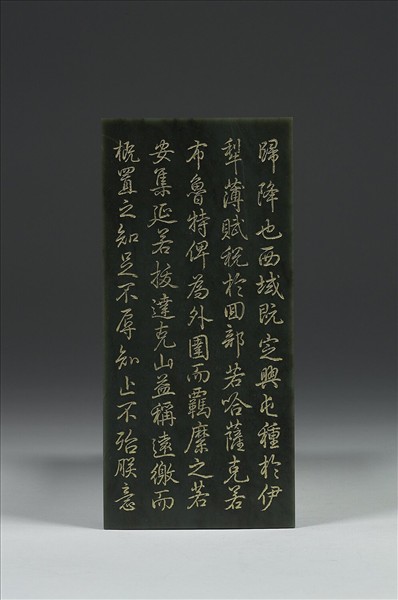 歸降也西域既定興屯種於伊
犁薄賦稅於回部若哈薩克若
布魯特俾為外圉而羈縻之若
安集延若拔達克山益稱遠徼而
概置之知足不辱知止不殆朕意